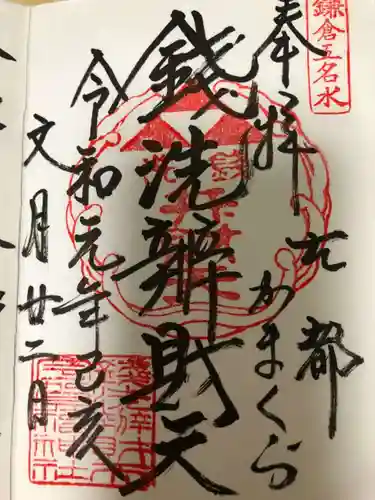 鎌倉五名水
奉拝 古都
かまくら
銭洗辧財天
令和元年己亥
文月廿二日